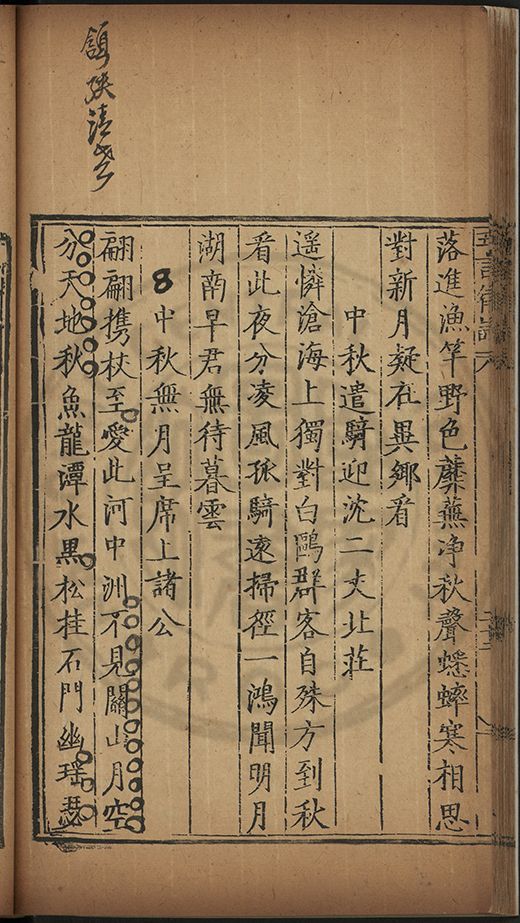 五言律詩
落進漁竿野色蘼蕪净秋聲蟋蟀寒相思
對新月疑在異鄉看
中秋遣騎迎沈二丈北莊
遥憐滄海上獨對白鷗群客自殊方到秋
看此夜分凌風孤騎遠掃徑一鴻聞明月
湖南早君無待暮雲
中秋無月呈席上諸公
翩翩携杖至愛此河中洲不見關山月空
分天地秋魚龍潭水黒松桂石門幽瑶瑟